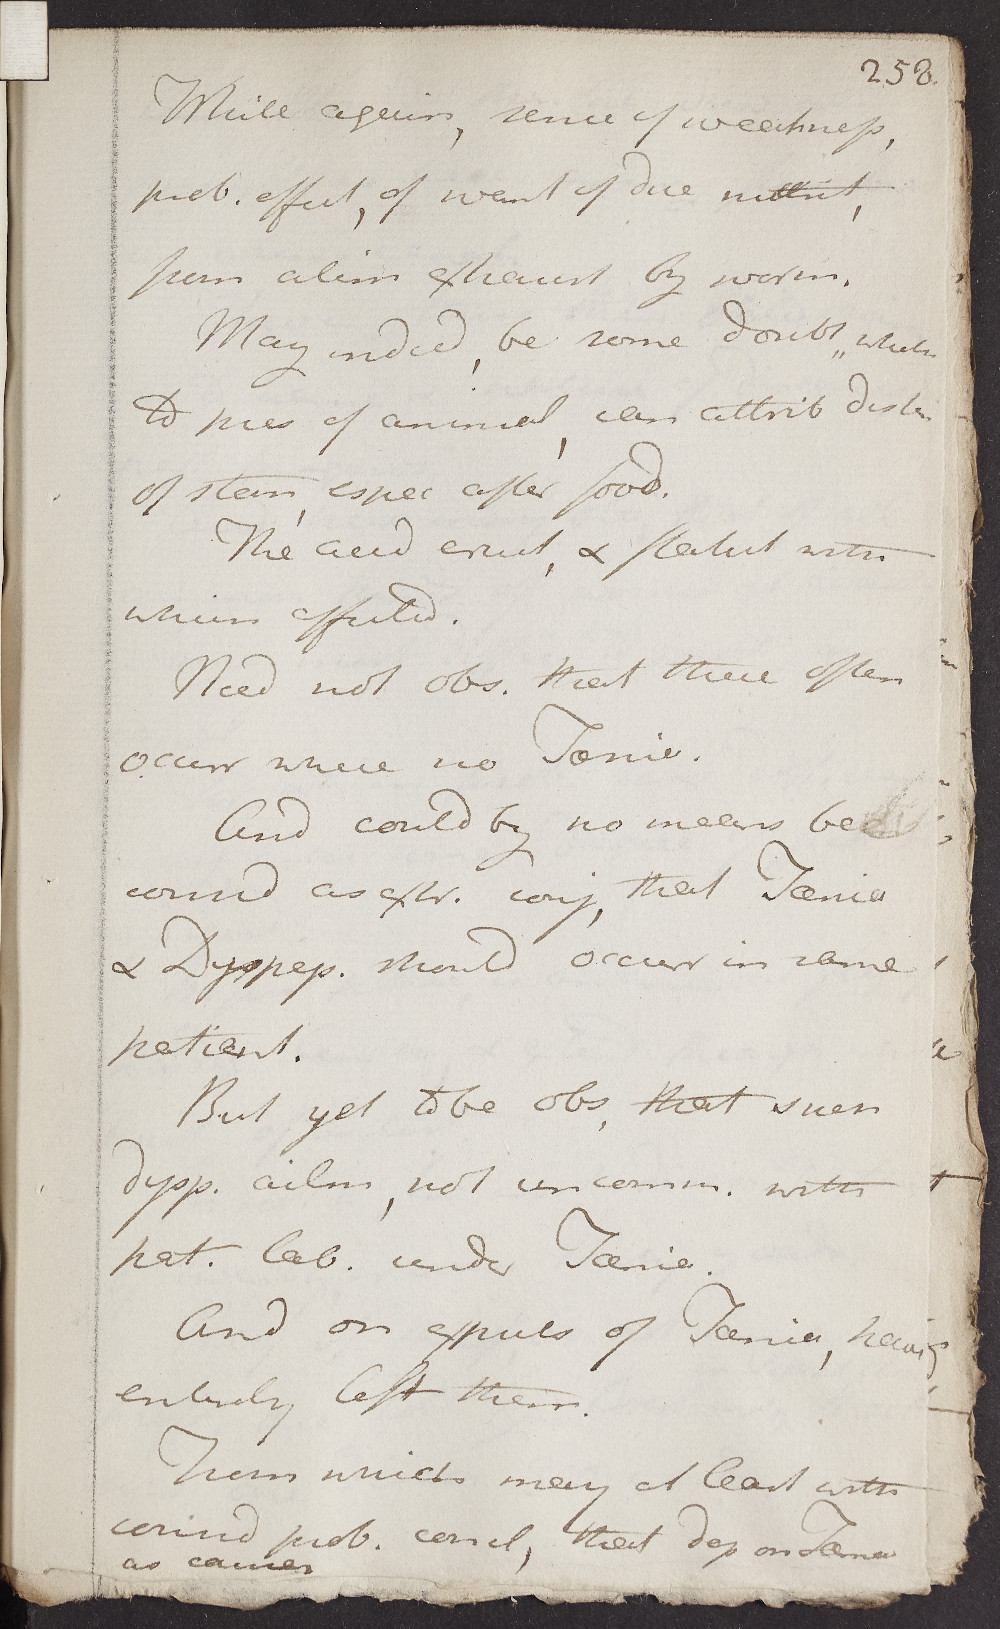 258
While again, sense of weakness,
prob. effect, of want of due nutrit,
from alim exhaust by worm.
May indeed, be some doubt, wheth
to pres of animal, can attrib disten
of stom, espec after food.
The acid eruct, & flatul with
which affected.
Need not obs. that these often
occurr where no Tænia.
And could by no means be
consid as extr. conj, that Tænia
& Dyspep. should occurr in same
patient.
But yet to be obs, that such
dysp. ailm, not uncomm. with
pat. lab. under Tænia.
And on expuls of Tænia, having
entirely left them.
From which may at least with
consid prob. concl, that dep on Tænia
as causes